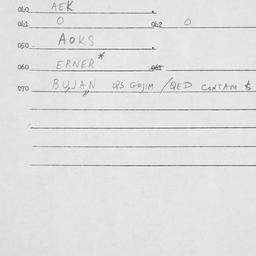 040 AEK
041 0 042 0
050 AOKS
060 ERNER* 065
070 BUJAN QS GOJIM / QED CONTAM $